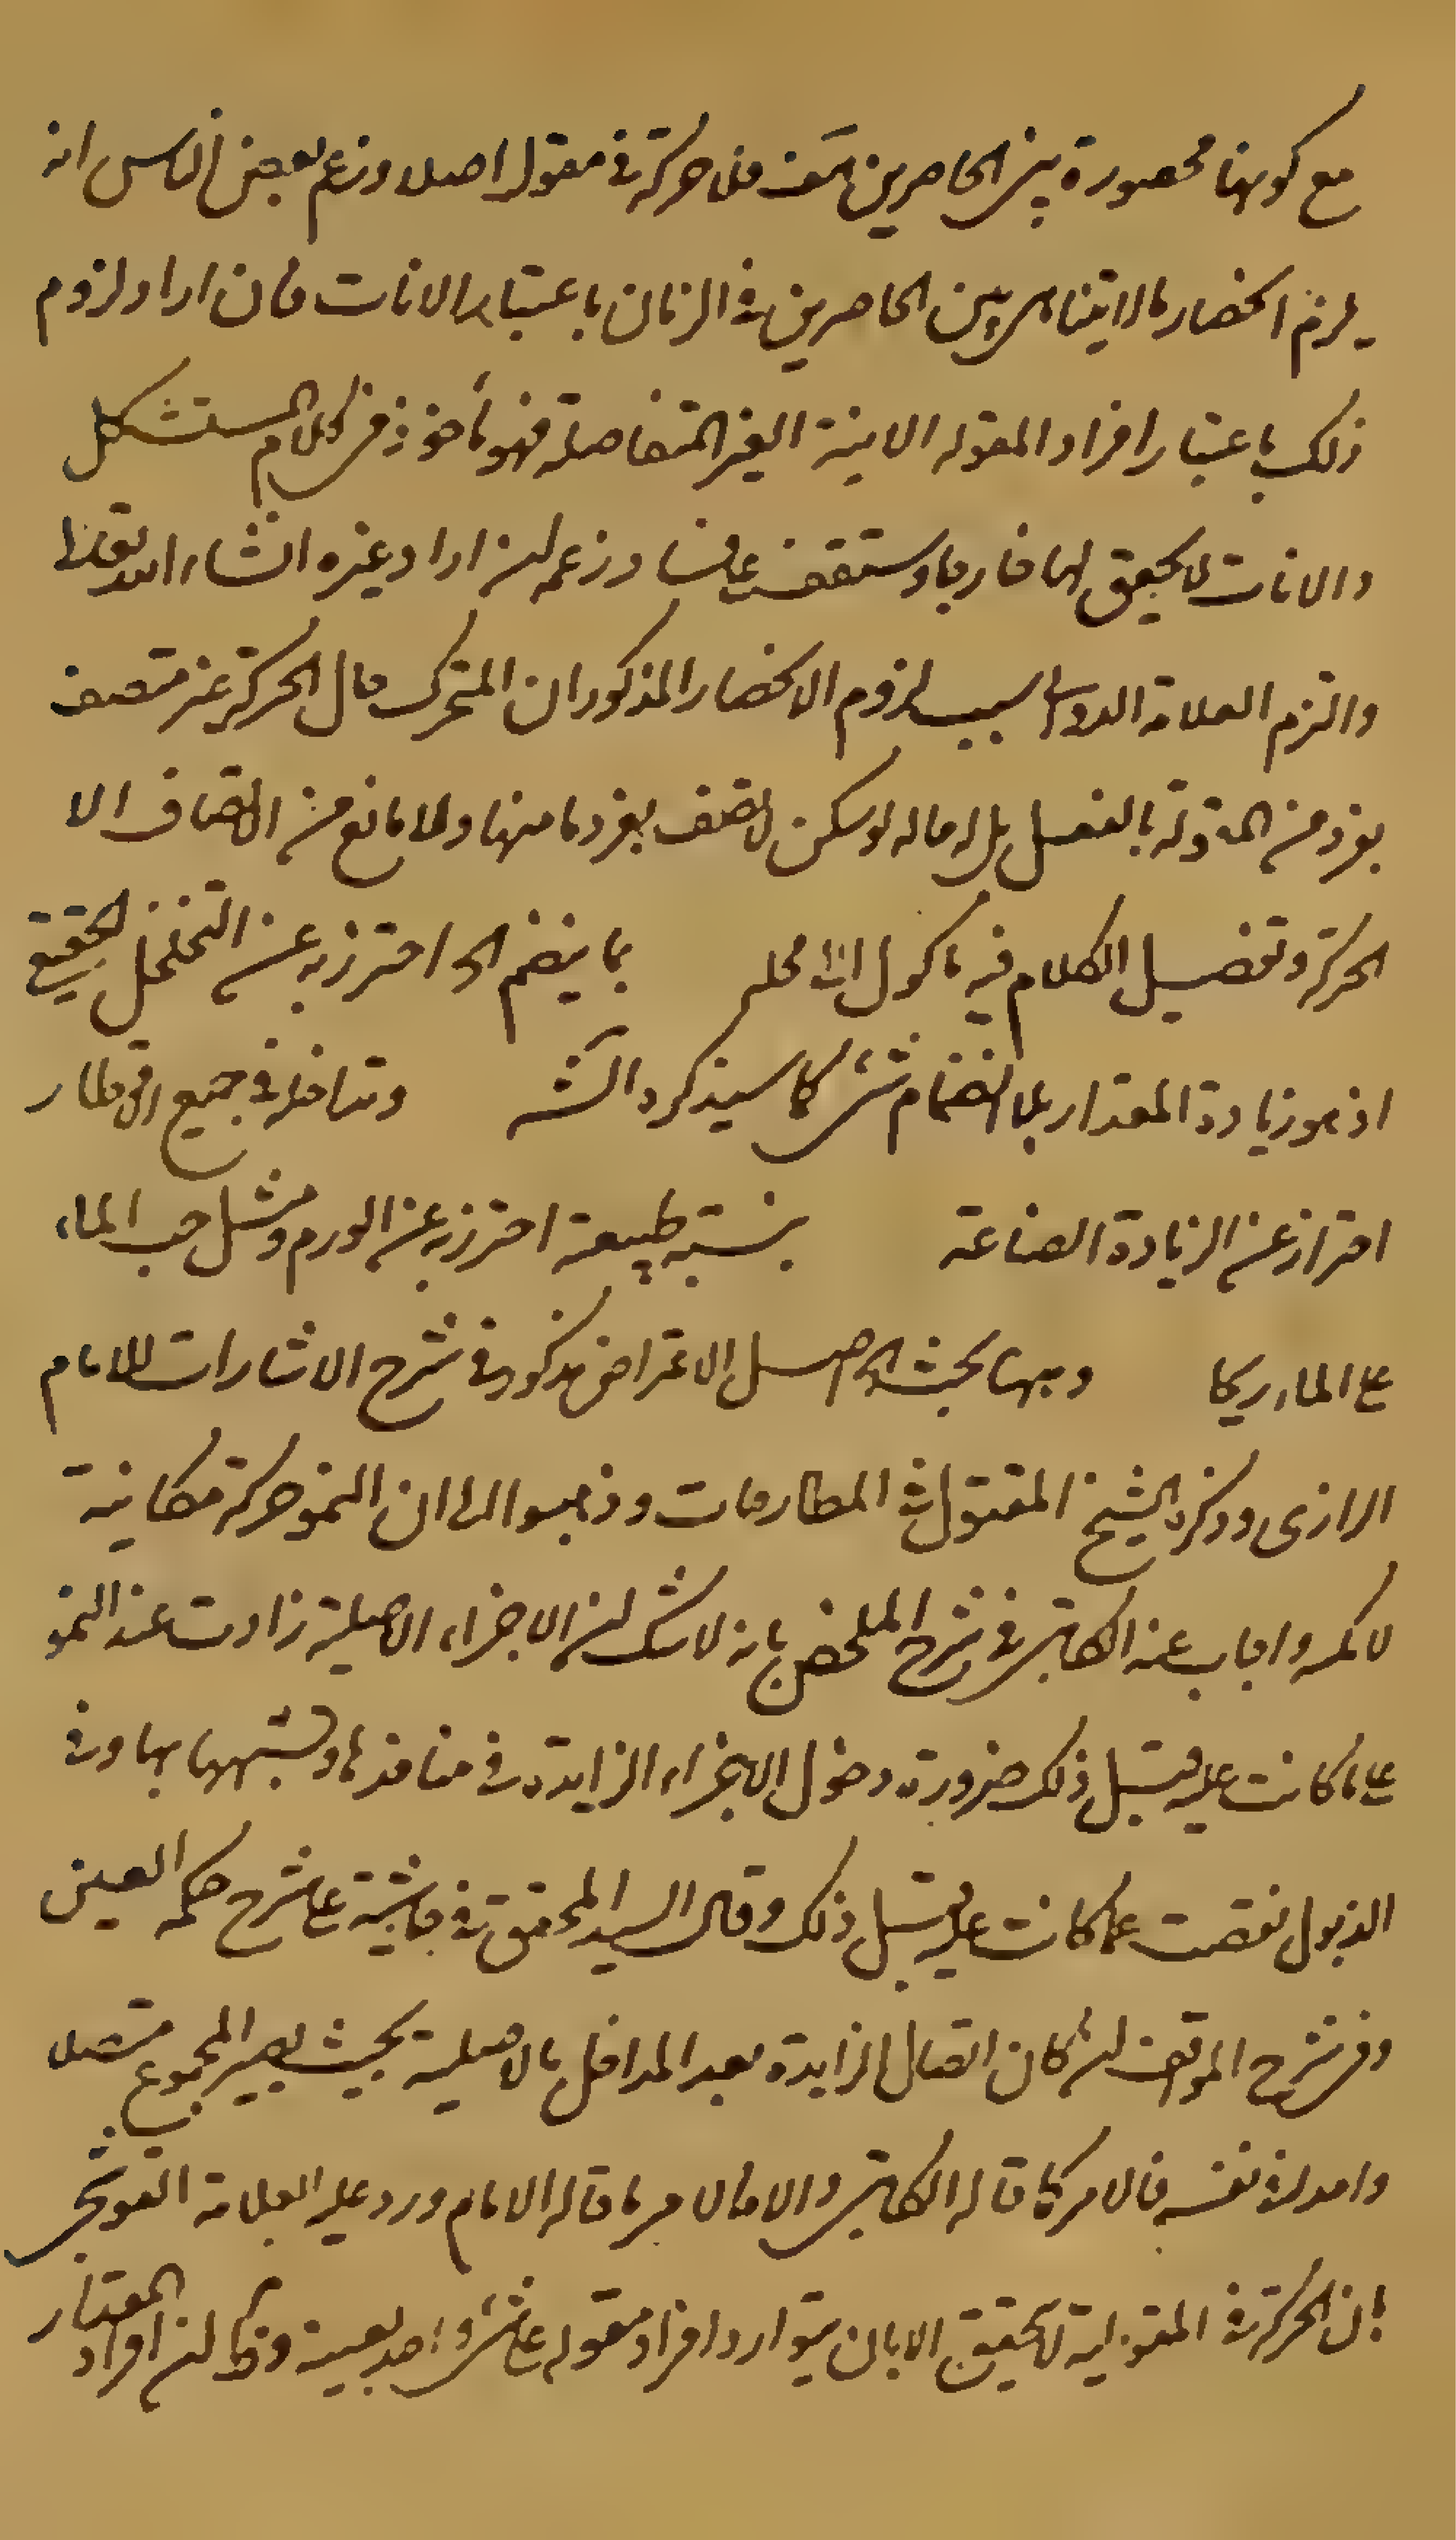 مع كونها محصورة بين الحاصرين هف فلا حركة في مقولة اصلا وزعم بعض الناس انه
يلزم انحصار مالايتناهى بين الحاصرين في الزمان باعتبار الانات فان اراد لزوم
ذلك باعتبار افراد المقولة الاينية الغير المتفاصلة فهو مأخوذ من كلام المستشكل
والانات لا تحقق لها خارجا وستقف على فساد زعمه ان اراد غيره انشاء الله تعالى
والتزم العلامة الدواني سبب لزوم الانحصار المذكور ان المتحرك حال الحركة غير متصف
بفرد من المقولة بالفعل بل له حالة لو سكن لاتصف بفرد ما منها ولا مانع من الاتصاف الا
الحركة وتفصيل الكلام فيه موكول الى محله بما ينضم الخ احترز به عن التخلخل الحقيقي
اذ هو زيادة المقدار بلا انضمام شئ كما سيذكره الش وتداخله في جميع الاقطار
احتراز عن الزيادة الصناعية بنسبة طبيعية احترز به عن الورم ومثل حب الماء
على الماء ريحا وههنا بحث الخ اصل الاعتراض مذكور في شرح الاشارات للامام
الرازى وذكره الشيخ المقتول في المطارحات وذهبوا الى ان النمو حركة مكانية
لا كمية واجاب عنه الكاتبي في شرح الملخص بانه لا شك ان الاجزاء الاصلية زادت عند النمو
على ما كانت عليه قبل ذلك ضرورة دخول الاجزاء الزايدة في منافذها وتشبهها بها وفي
الذبول نقصت عما كانت عليه قبل ذلك وقال السيد المحقق في حاشية على شرح حكمة العين
وفي شرح المواقف ان كان اتصال الزايدة بعد المداخلة بالاصلية بحيث يصير المجموع متصلا
واحدا في نفسه فالامر كما قاله الكاتبي والا فالامر ما قاله الامام ورد عليه العلامة القوشجي
بان الحركة في المقولية لا تحقق الا بان يتوارد افراد مقولة على شئ واحد بعينه وذلك ان افراد المقدار